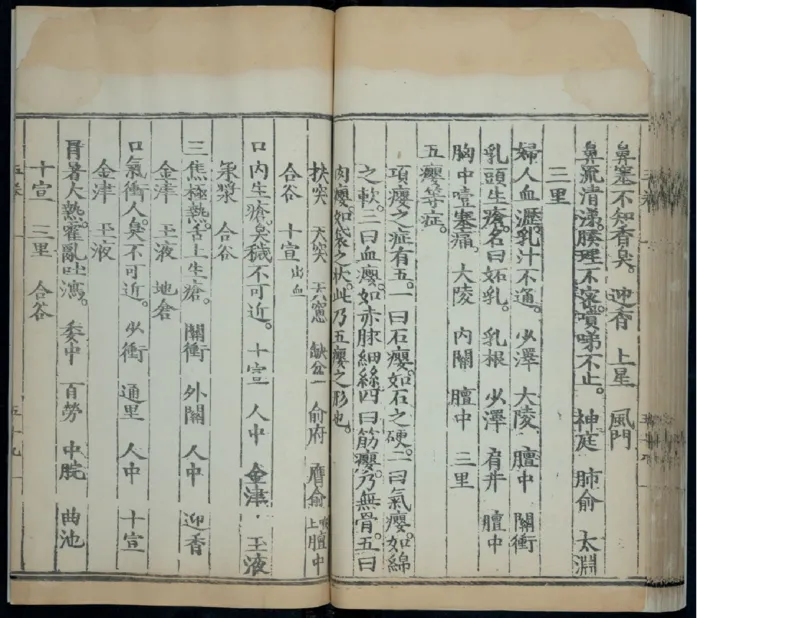 鼻塞不知香臭。迎香 上星 風門
鼻流清涕。腠理不密。噴嚏不止。神庭 肺俞 太淵
三里
婦人血瀝。乳汁不通。少澤 大陵 膻中 關衝
乳頭生瘡。名曰妬乳。乳根 少澤 肩井 膻中
胸中噎塞痛。大陵 內關 膻中 三里
五癭等症。
項癭之症有五。一曰石癭。如石之硬。二曰氣癭。如綿
之軟。三曰血癭。如赤脉細絲四曰筋癭。乃無骨。五曰
肉癭。如袋之狀。此乃五癭之形也。
扶突 天突 天窻 缺盆 俞府 膺俞 上 膻中
合谷 十宣 出血
口內生瘡臭穢不可近。十宣 人中 金津 玉液
承漿 合谷
三焦極熱。舌上生瘡。關衝 外關 人中 迎香
金津 玉液 地倉
口氣衝人。臭不可近。少衝 通里 人中 十宣
金津 玉液
冐暑大熱。霍亂吐瀉。委中 百勞 中脘 曲池
十宣 三里 合谷